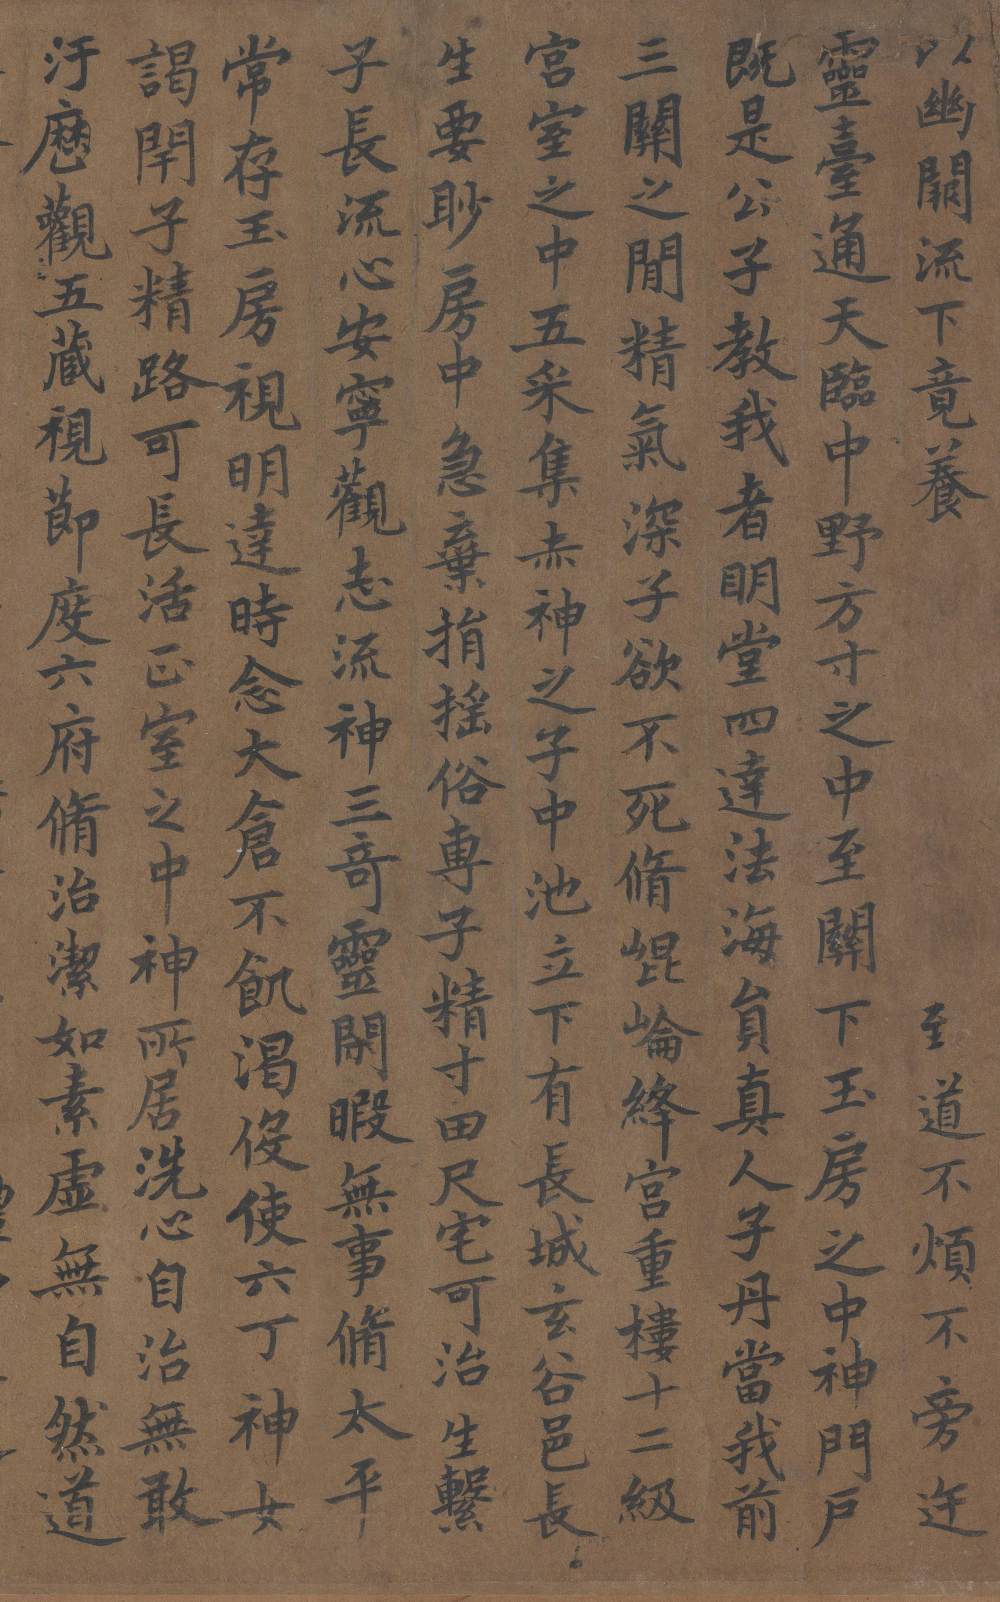 以幽關流下竟養至道不煩不旁迕
靈臺通天臨中野方寸之中至關下玉房之中神門戶
既是公子教我者明堂四達法海員真人子丹當我前
三關之閒精氣深子欲不死脩崐崘絳宮重樓十二級
宮室之中五采集赤神之子中池立下有長城玄谷邑長
生要眇房中急棄捐搖俗專子精寸田尺宅可治生繫
子長流心安寧觀志流神三奇靈閑暇無事脩太平
常存玉房視明達時念大倉不飢渴役使六丁神女
謁閇子精路可長活正室之中神所居洗心自治無敢
汙歷觀五藏視節度六府脩治潔如素虛無自然道